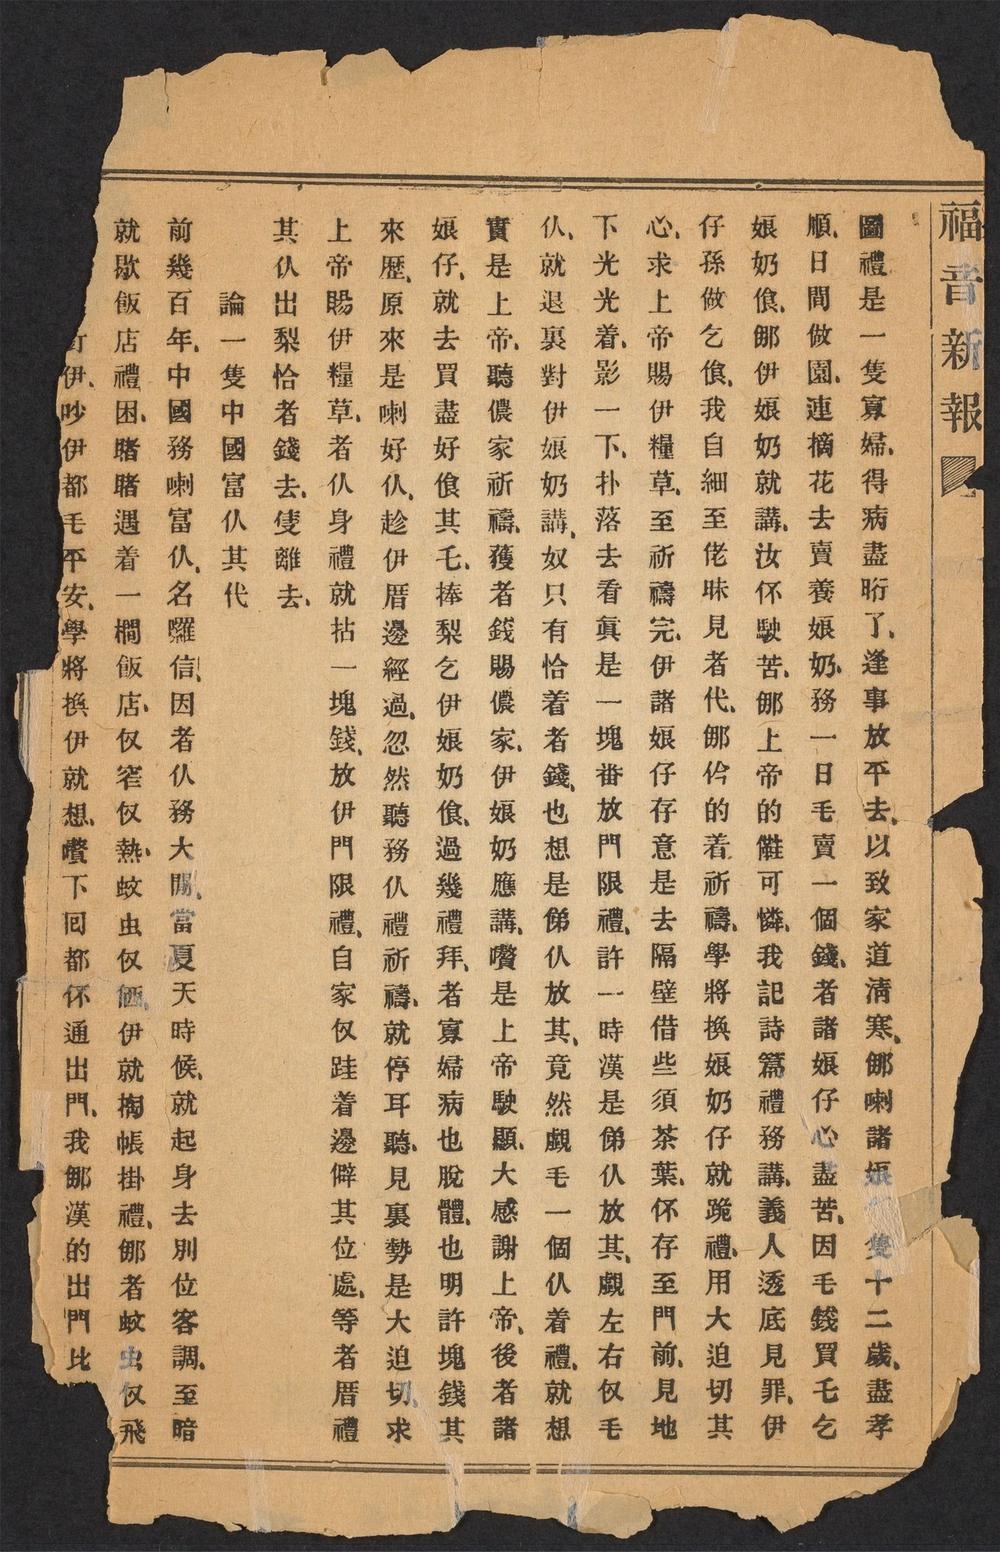 福音新報
圖禮是一隻寡婦、得病盡昕了、逢事放平去、以致家道清寒、㑚喇諸娘隻十二歲、盡孝
順、日間做園、連摘花去賣養娘奶、務一日毛賣一個錢、者諸娘仔心盡苦、因毛錢買乇乞
娘奶食、㑚伊娘奶就講、汝伓駛苦、㑚上帝的㒲可憐、我記詩篇禮務講、義人透底見罪、伊
仔孫做乞食、我自細至佬昧見者代、㑚伱的着祈禱、學將換娘奶仔就跪禮、用大迫切其
心、求上帝賜伊糧草、至祈禱完、伊諸娘仔存意是去隔壁借些須茶葉、伓存至門前、見地
下光光着、影一下、扑落去看眞是一塊番放門限禮、許一時漢是俤仈放其、覷左右仅毛
仈、就退裏對伊娘奶講、奴只有恰着者錢、也想是俤仈放其、竟然覷毛一個仈着禮、就想
實是上帝、聽儂家祈禱、獲者錢賜儂家、伊娘奶應講、㘔是上帝駛顯、大感謝上帝、後者諸
娘仔、就去買盡好食其乇、捧梨乞伊娘奶食、過幾禮拜、者寡婦病也脫體、也明許塊錢其
來歷、原來是喇好仈、趁伊厝邊經過、忽然聽務仈禮祈禱、就停耳聽、見裏勢是大迫切、求
上帝賜伊糧草、者仈身禮就拈一塊錢、放伊門限禮、自家仅跬着邊僻其位處、等者厝禮
其仈出梨恰者錢去、隻離去、
論一隻中國富仈其代
前幾百年、中國務喇富仈、名囉信、因者仈務大賜、當夏天時候、就起身去別位客調、至暗
就歇飯店禮困、賭賭遇着一櫊飯店、仅窄仅熱、蚊虫仅㑻、伊就掏帳掛禮、㑚者蚊虫仅飛
盯伊、吵伊都毛平安、學將換伊就想、㘔下囘都伓通出門、我㑚漢的出門比